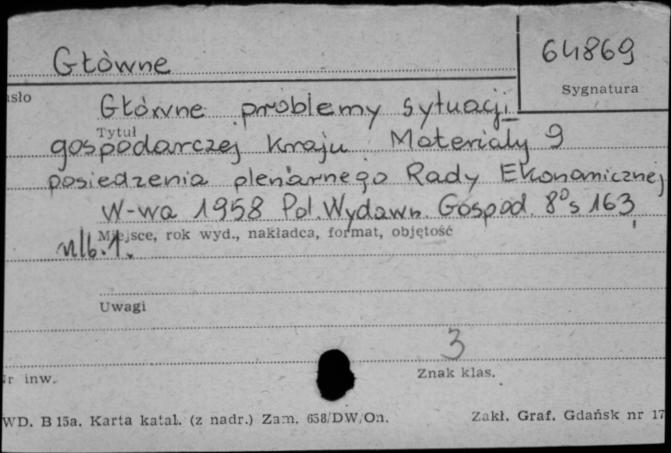 Główne
64869
Sygnatura
Główne problemy sytuacji
Tytuł
gospodarczej kraju. Materiały 9
posiedzenia plenarnego Rady Ekonomicznej
W-wa 1958 Pol. Wydawn. Gospod. 8° s 163,
Miejsce, rok wyd., nakładca, format, objętość
nlb. 1.
Uwagi
3
Nr inw.
Znak klas.
WD. B 15a. Karta katal. (z nadr.) Zam. 658/DW/On.
Zakł. Graf. Gdańsk nr 17